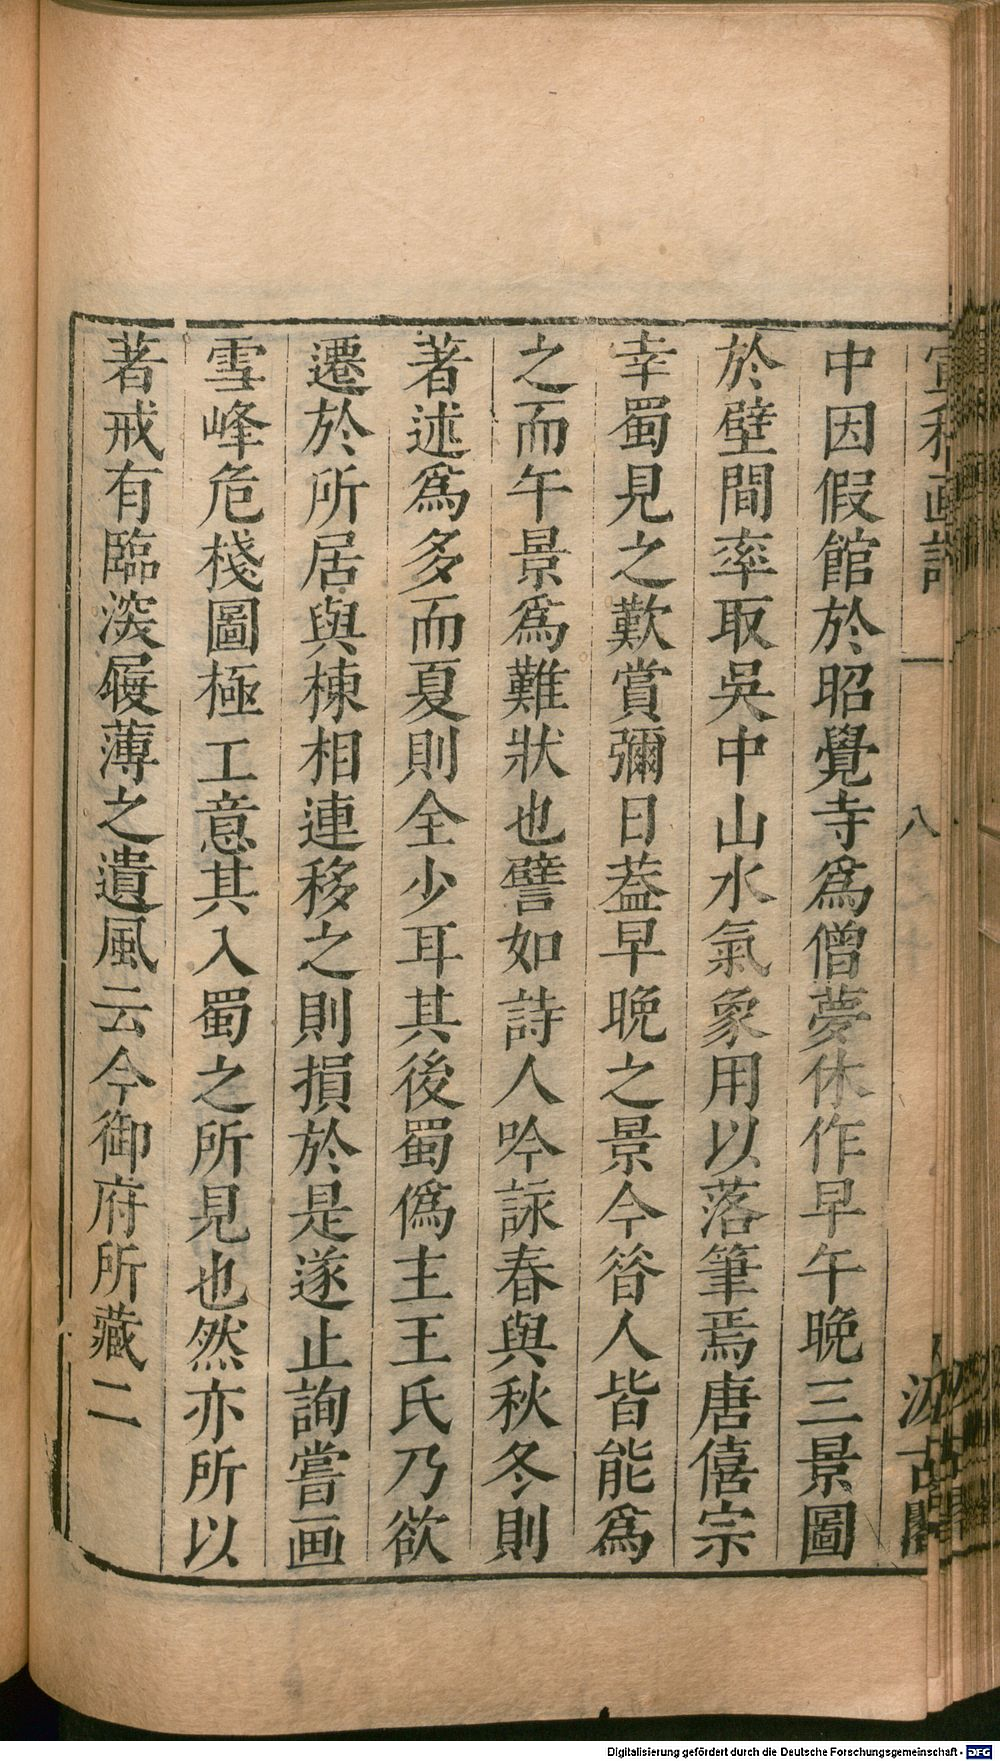 宣和画譜
八
汲古閣
中因假館於昭覺寺爲僧夢休作早午晚三景圖
於壁間率取吳中山水氣象用以落筆焉唐僖宗
幸蜀見之歎賞彌日葢早晚之景今昝人皆能爲
之而午景爲難狀也譬如詩人吟詠春與秋冬則
著述爲多而夏則全少耳其後蜀僞主王氏乃欲
遷於所居與棟相連移之則損於是遂止詢嘗画
雪峰危棧圖極工意其入蜀之所見也然亦所以
著戒有臨深履薄之遺風云今御府所藏二
Digitalisierung gefördert durch die Deutsche Forschungsgemeinschaft - DFG